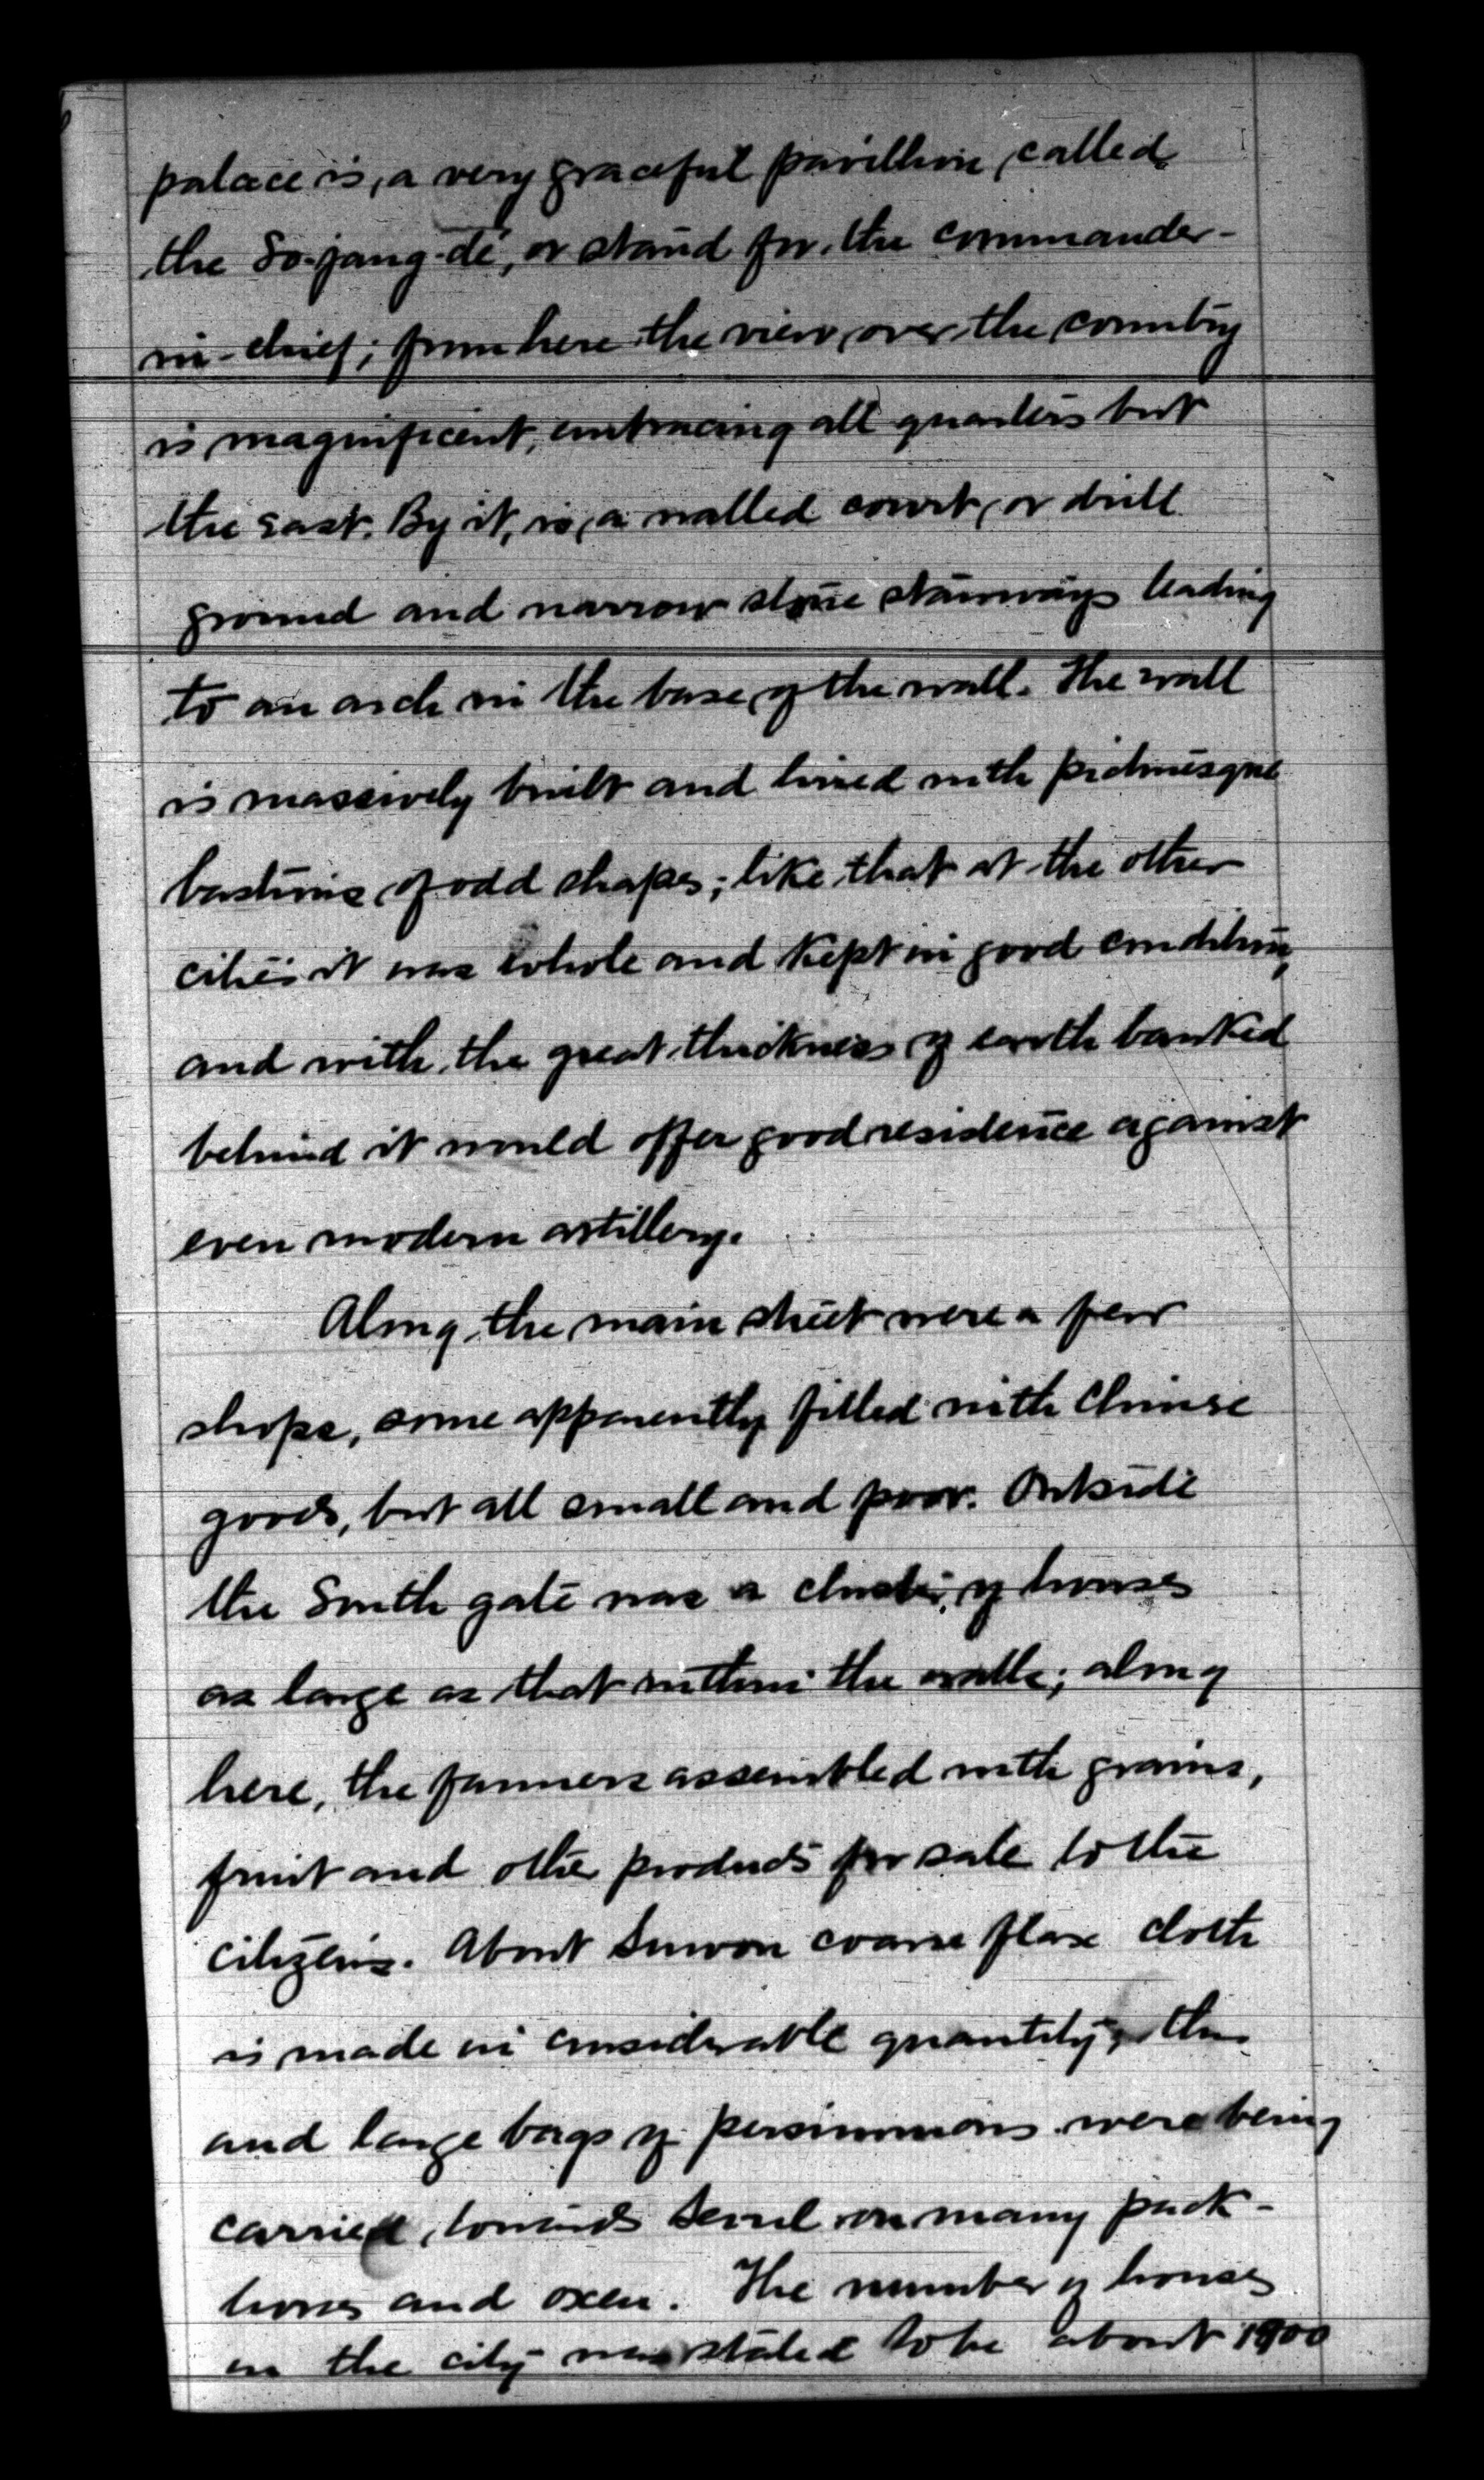 palace is, a very graceful pavillion, called
the So-jang-dé, or stand for the commander-
in-chief; from here the view over the country
is magnificent, embracing all quarters but
the East. By it, is, a walled court, or drill
ground and narrow stone stairways leading
to an arch in the base of the wall. The wall
is massively built and lined with picturesque
bastions of odd shapes; like that at the other
cities it was whole and kept in good condition,
and with the great thickness of earth banked
behind it would offer good residence against
even modern artillery.
Along the main street were a few
shops, some apparently filled with Chinese
goods, but all small and poor. Outside
the South gate was a cluster of houses
as large as that within the walls; along
here, the farmers assembled with grains,
fruit and other products for sale to the
citizens. About Suwon coarse flax cloth
is made in considerable quantity; this
and large bags of persimmons were being
carried, towards Seoul on many pack-
horses and oxen. The number of houses
in the city was stated to be about 1900